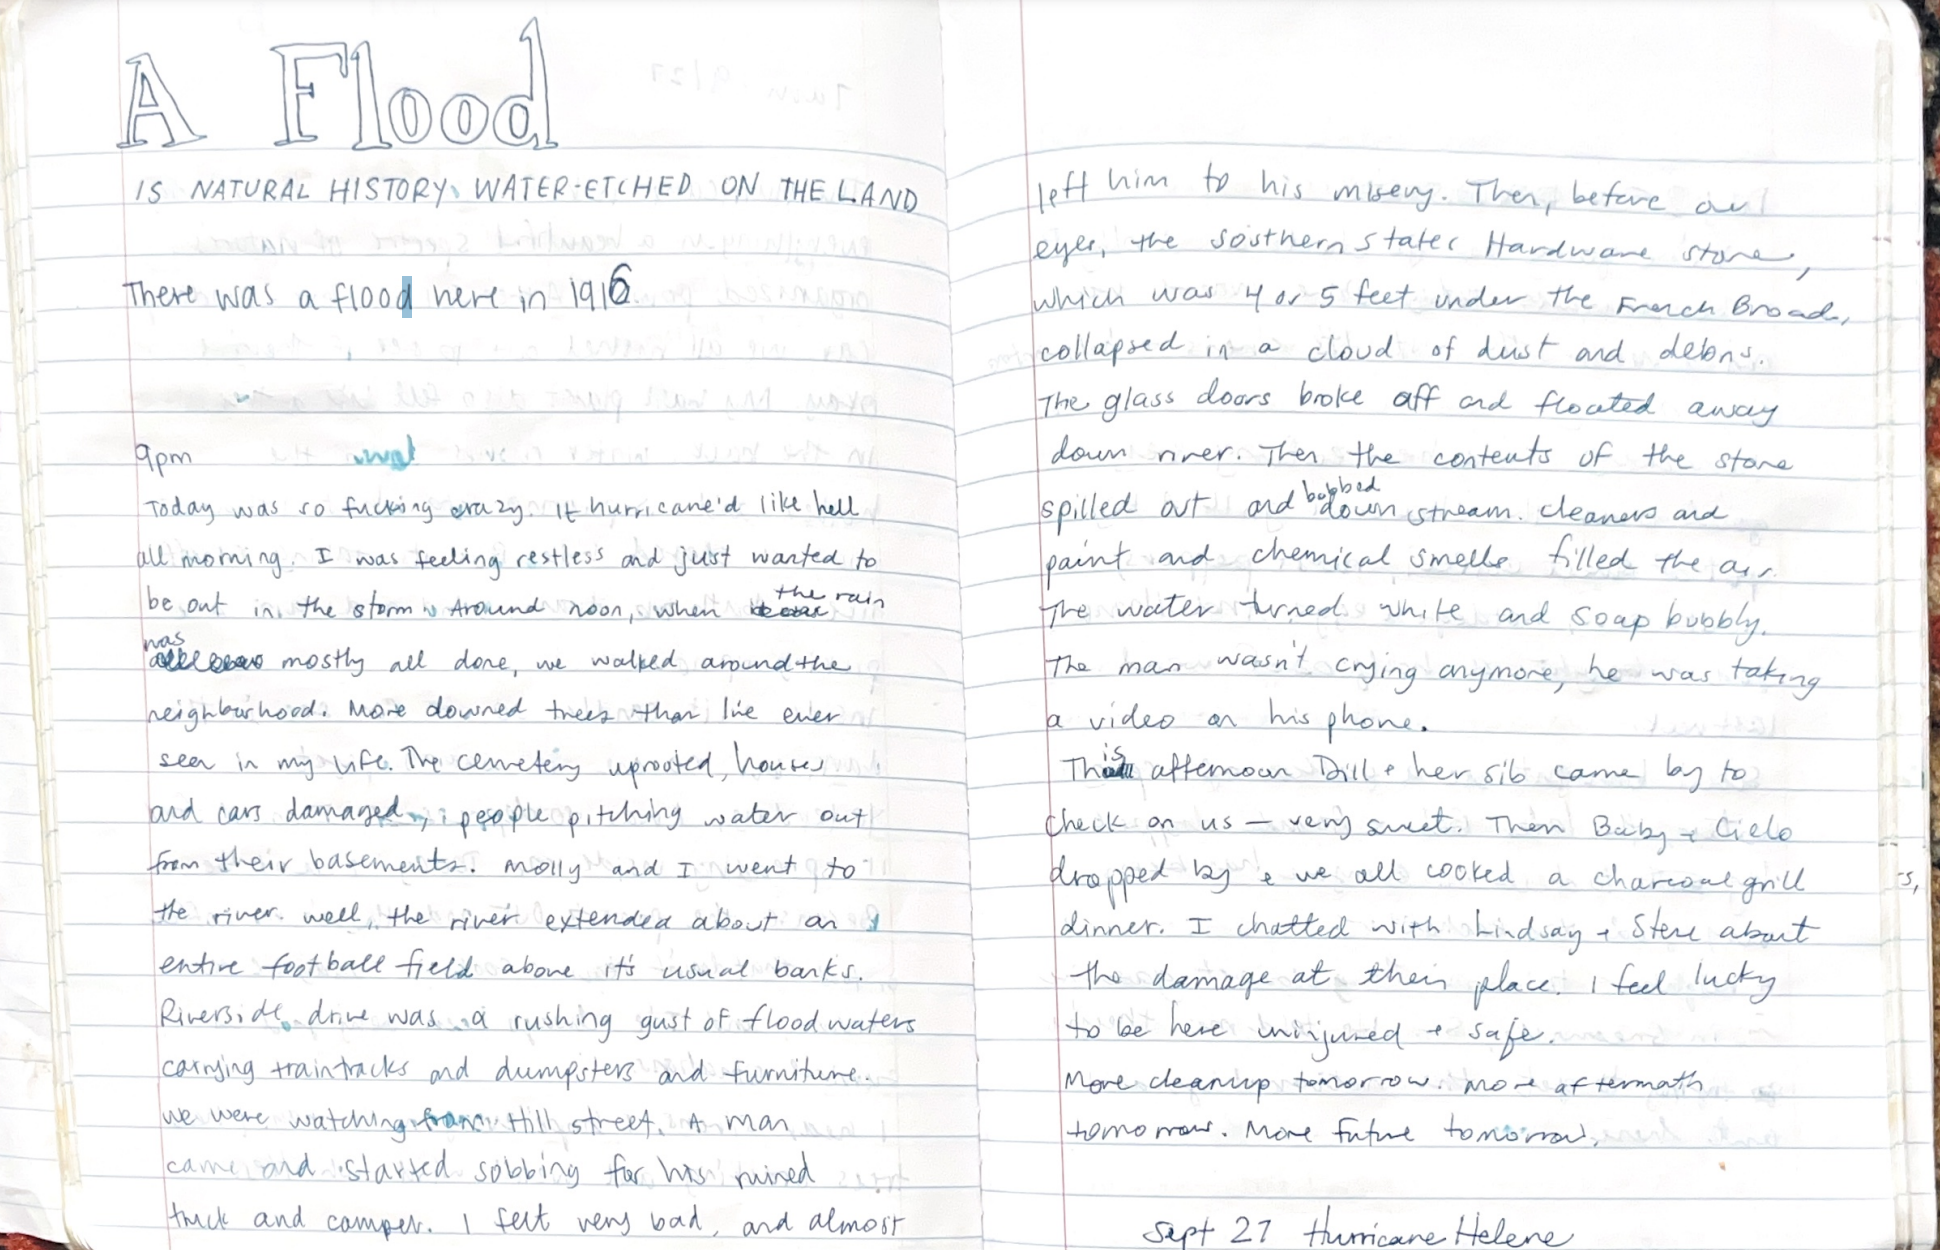 A Flood
IS NATURAL HISTORY WATER-ETCHED ON THE LAND
There was a flood here in 1916.
9pm
Today was so fucking crazy. It hurricane'd like hell
all morning. I was feeling restless and just wanted to
be out in the storm. Around noon, when the rain
was mostly all done, we walked around the
neighborhood. More downed trees than I've ever
seen in my life. The cemetery uprooted, houses
and cars damaged, people pitching water out
from their basements. Molly and I went to
the river. Well, the river extended about an
entire football field above it's usual banks.
Riverside drive was a rushing gust of flood waters
carrying traintracks and dumpsters and furniture.
We were watching from Hill street. A man
came and started sobbing for his ruined
truck and camper. I felt very bad, and almost
left him to his misery. Then, before our
eyes, the Southern States Hardware store,
which was 4 or 5 feet under the French Broad,
collapsed in a cloud of dust and debris.
The glass doors broke off and floated away
down river. Then the contents of the store
spilled out and bobbed down stream. Cleaners and
paint and chemical smells filled the air.
The water turned white and soap bubbly.
The man wasn't crying anymore, he was taking
a video on his phone.
This afternoon Dill + her sib came by to
check on us — very sweet. Then Baby + Cielo
dropped by & we all cooked a charcoal grill
dinner. I chatted with Lindsay + Steve about
the damage at their place. I feel lucky
to be here uninjured + safe.
More cleanup tomorrow. More aftermath
tomorrow. More future tomorrow.
Sept 27 Hurricane Helene